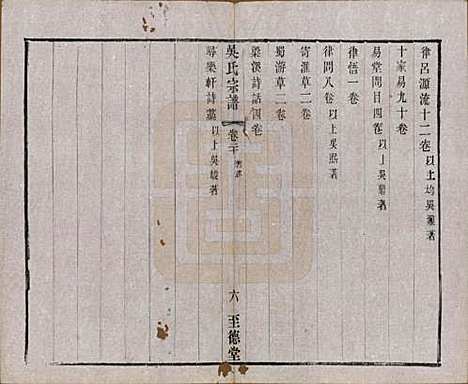 律呂源流十二卷以上均吳鼐著
十家易九十卷
易堂問目四卷以上吳鼎著
律悟一卷
律問八卷以上吳
寄滙草二卷
蜀游草二卷
梁溪詩話四卷
尋樂軒詩藁以上吳峻著
吳氏宗譜
卷三十
六
至德堂